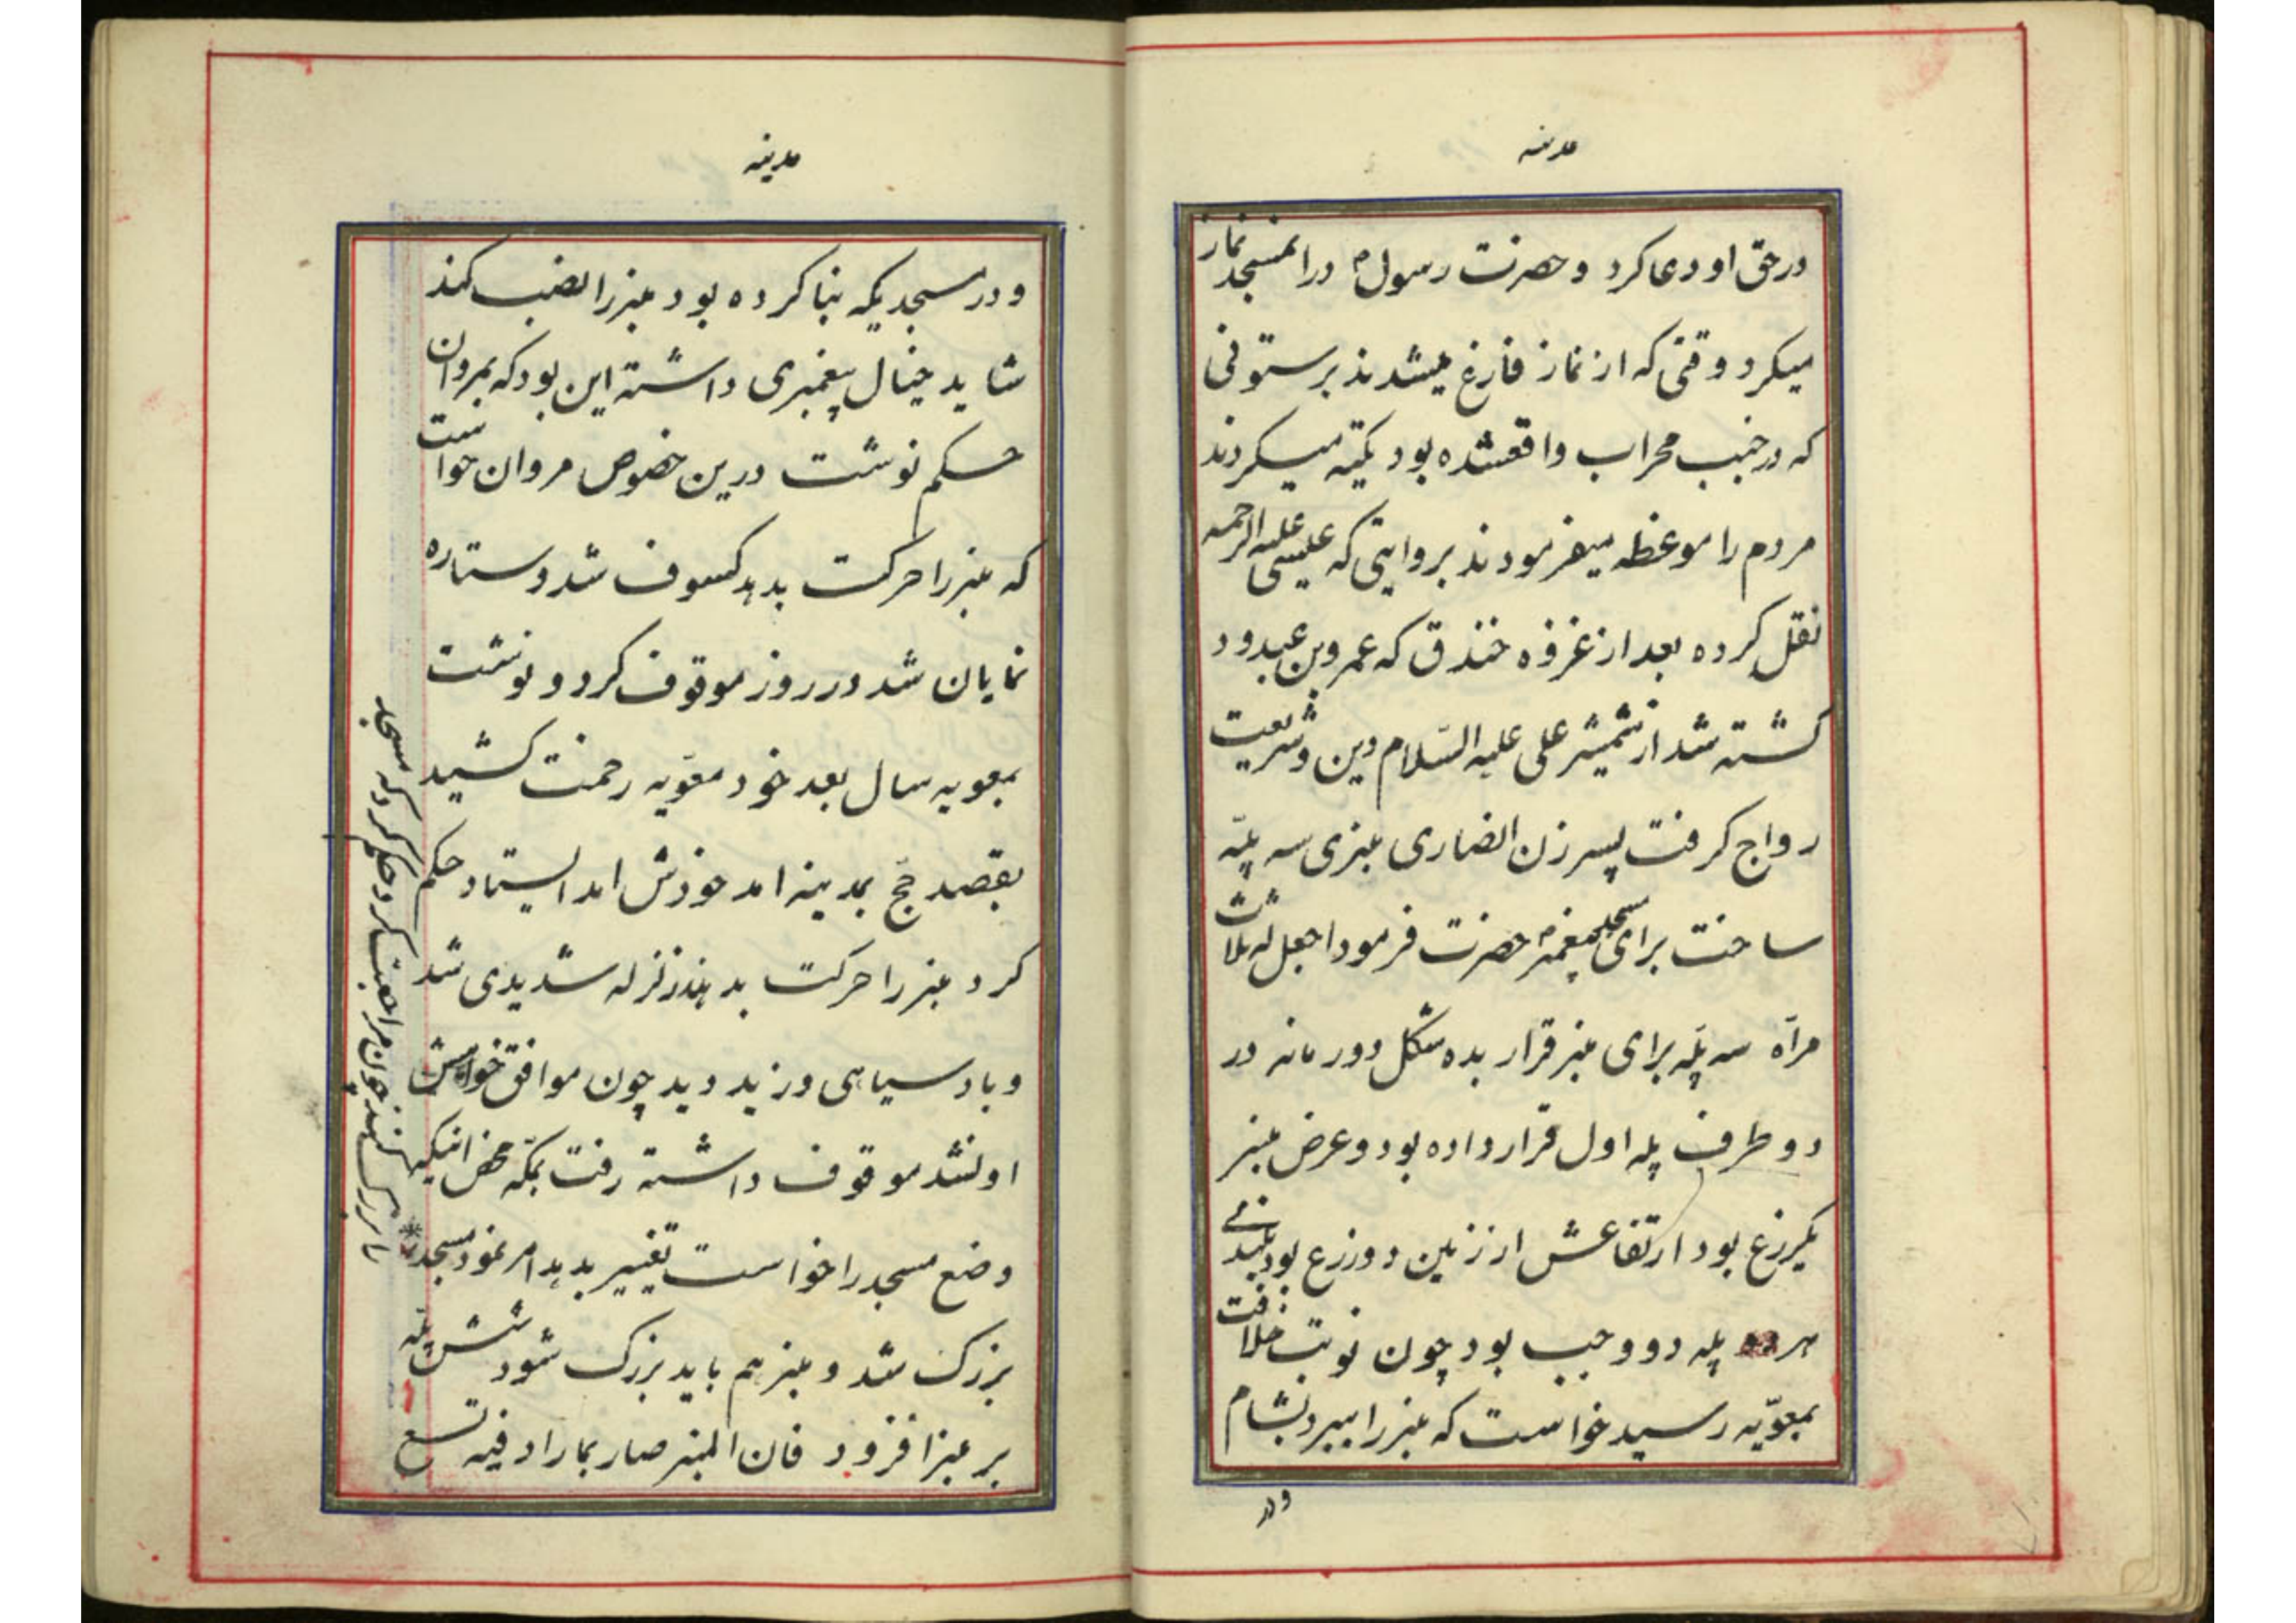 مدینه
در حق او دعا کرد و حضرت رسول م در انمسجد نماز
میکرد وقتی که از نماز فارغ میشدند بر ستونی
که در جنب محراب واقعشده بود تکیه میکردند
مردم را موعظه میفرمودند بروایتی که علیسی علیه الرحمه
نقل کرده بعد از غزوه خندق که عمرو بن عبدود
کشته شد از شمشیر علی علیه السّلام دین و شریعت
رواج کرفت پسر زن انصاری منبری سه پلّه
ساخت برای پیغمبر حضرت فرمود اجعل له ثلاث
مرآه سه پلّه برای منبر قرار بده شکل دو رمانه در
دو طرف پله اول قرار داده بود و عرض منبر
یکزرع بود ارتفاعش از زمین دو زرع بود بلندی
هر پله دو وجب بود چون نوبت خلافت
بمعوّیه رسید خواست که منبر را ببرد بشام
و در
مدینه
و در مسجدیکه بنا کرده بود منبر را نصب کند
شاید خیال پیغمبری داشته این بود که بمروان
حکم نوشت درین خصوص مروان خواست
که منبر را حرکت بدهد کسوف شد و ستاره
نمایان شد در روز موقوف کرد و نوشت
بمعویه سال بعد خود معوّیه زحمت کشید
بقصد حجّ بمدینه امد خودش امد ایستاد حکم
کرد منبر را حرکت بدهند زلزله شدیدی شد
و باد سیاهی وزید دید چون موافق خواهش
او نشد موقوف داشته رفت بمکّه محض اینکه
وضع مسجد را خواست تغییر بدهد امر نمود مسجد
بزرک شد و منبر هم باید بزرک شود شش پلّه
بر منبر افزود فان المنبر صار بما زاد فیه تسع
مراجعت کرد و حکم کرد که مسجد
را بزرک کنند چون